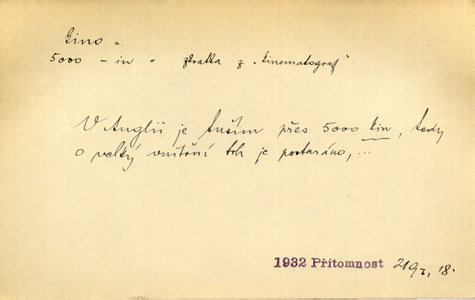 kino n.
5000 - in " zkratka z "kinematograf"
V Anglii je tuším přes 5000 kin, tedy
o velký vnitřní trh je postaráno, ...
1932 Přítomnost 219, 18.